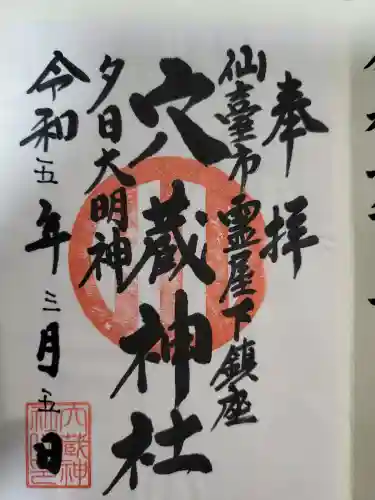 奉拝
仙臺市霊屋下鎮座
穴蔵神社
夕日大明神
令和五年三月五日